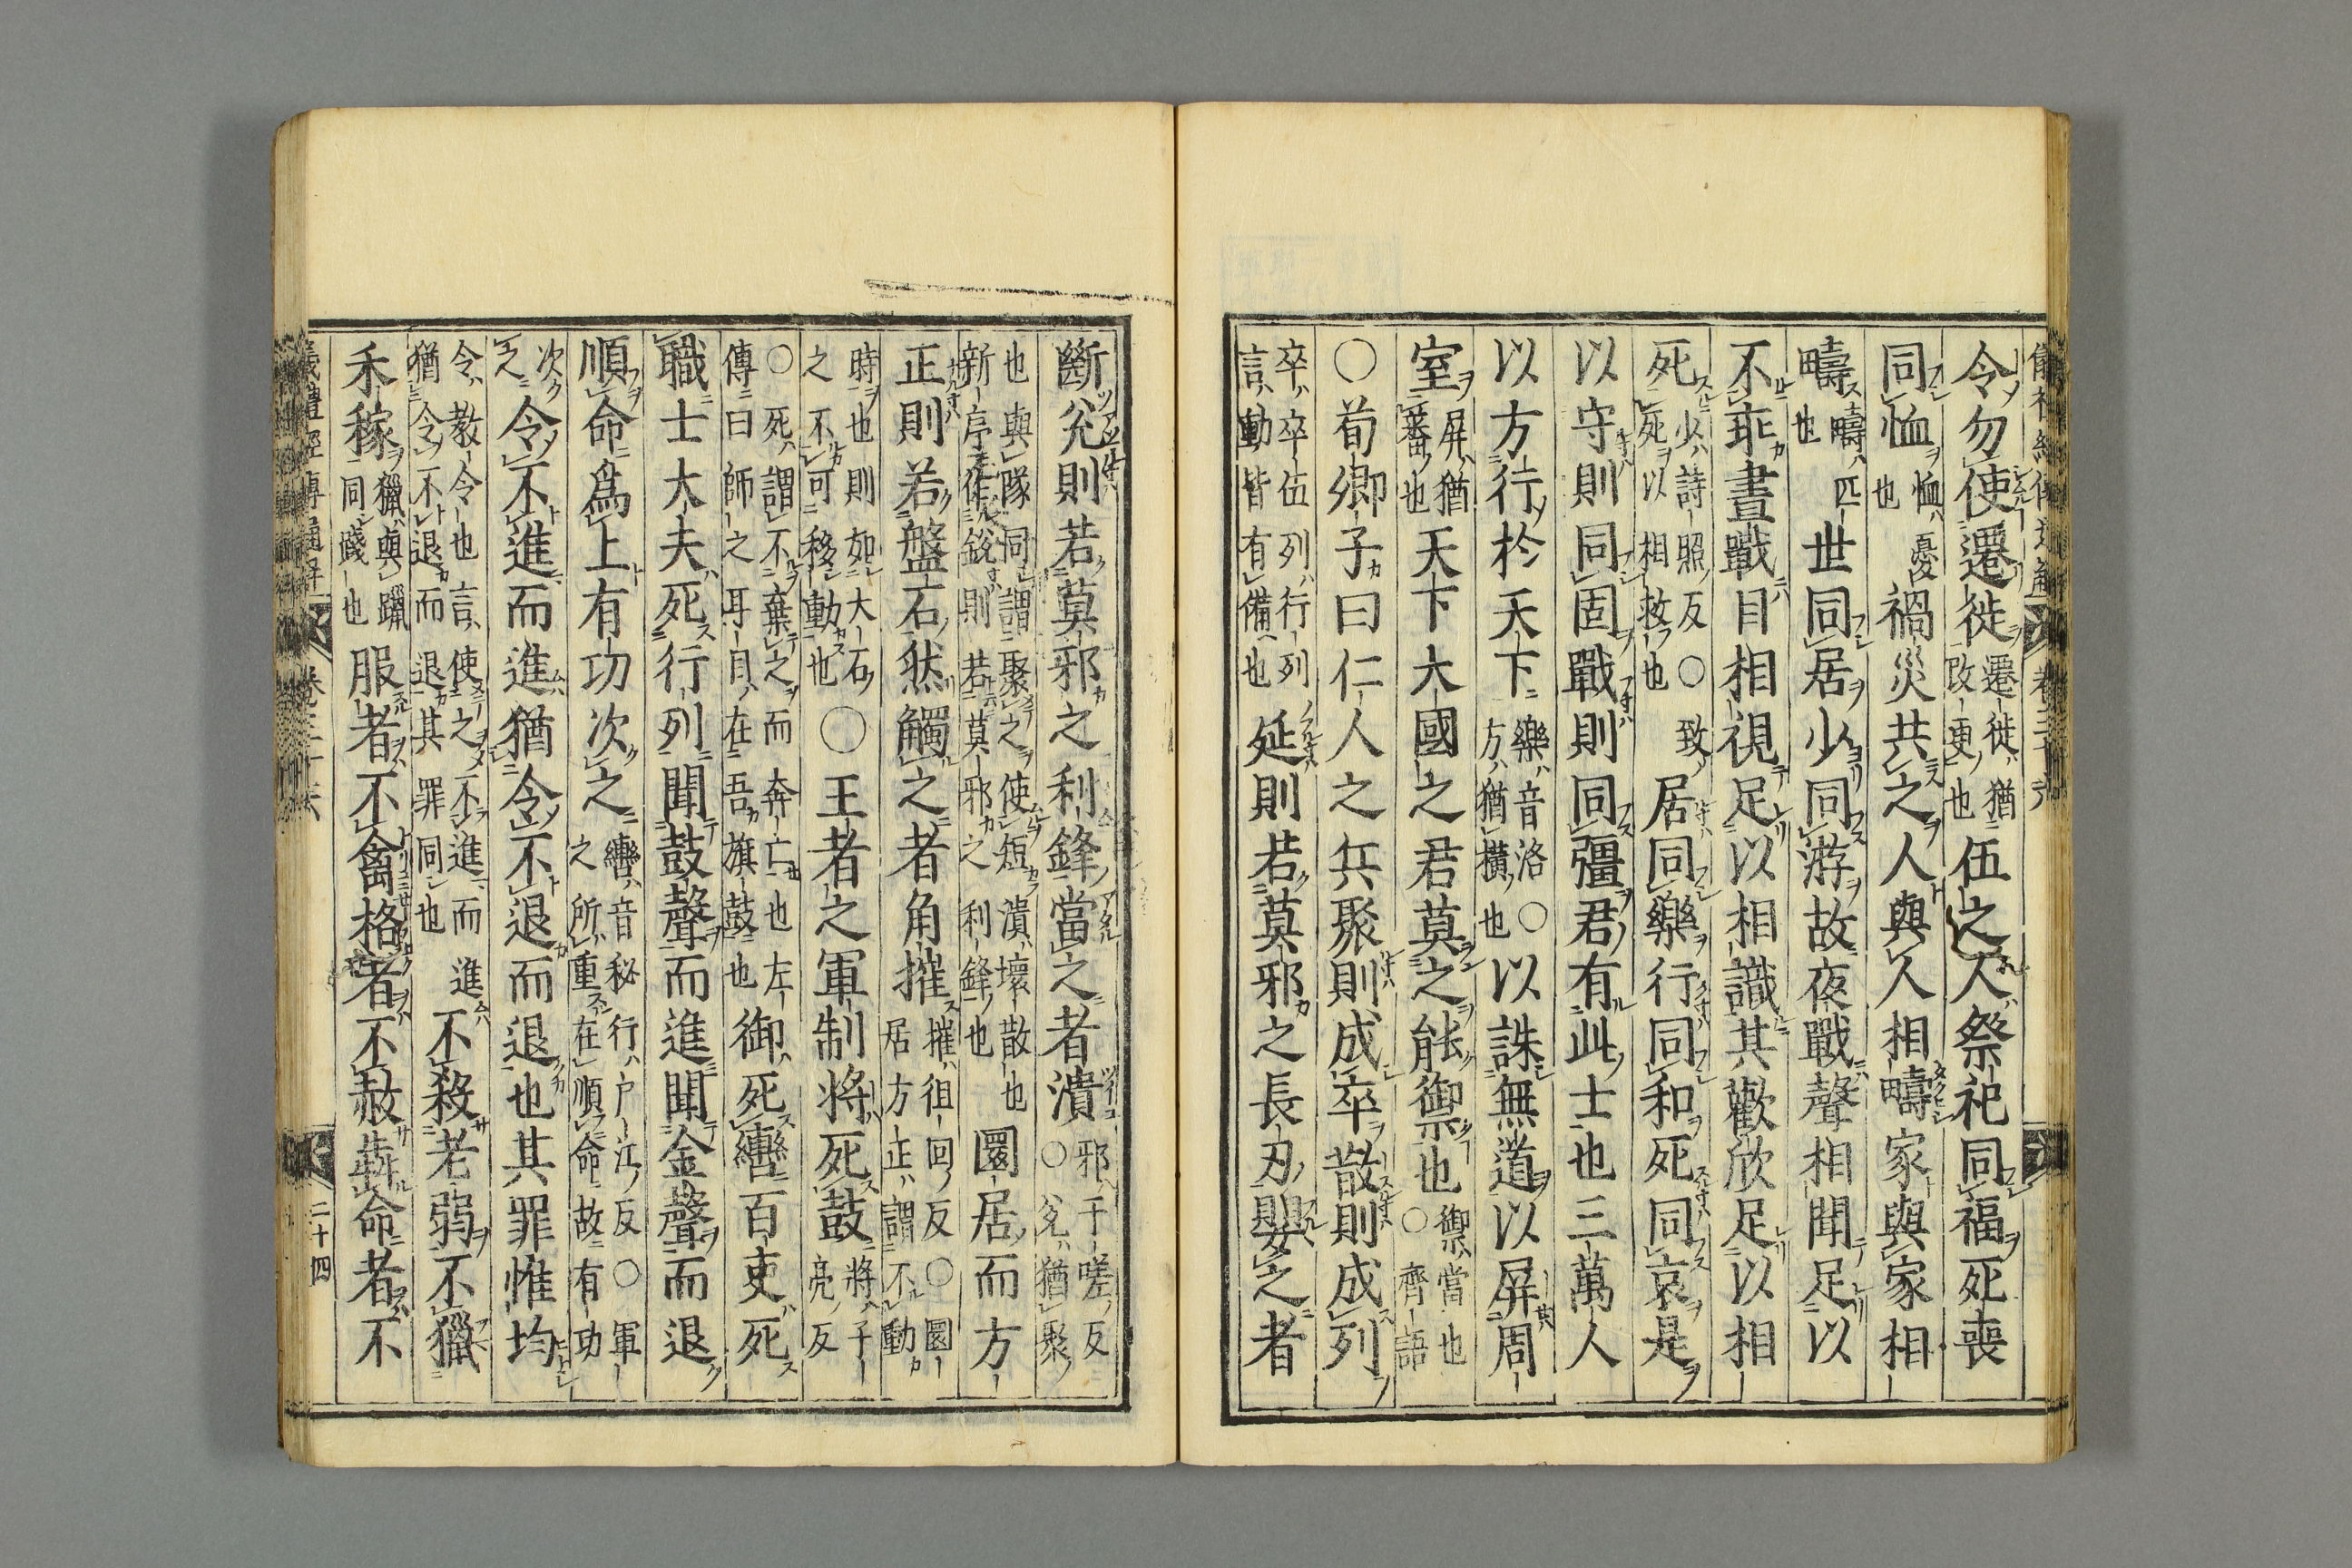 令勿使遷徙遷徙猶改更也伍之人祭祀同福死喪
同恤恤憂也禍災共之人與人相疇家與家相
疇疇匹也世同居少同游故夜戰聲相聞足以
不乖晝戰目相視足以相識其歡欣足以相
死少詩照反○致死以相救也居同樂行同和死同哀是
以守則同固戰則同彊君有此士也三萬人
以方行於天下樂音洛○方猶橫也以誅無道以屏周
室屏猶蕃也天下大國之君莫之能禦也禦當也○齊語
○荀卿子曰仁人之兵聚則成卒散則成列
卒卒伍列行列言動皆有備也延則若莫邪之長刃嬰之者
斷兊則若莫邪之利鋒當之者潰邪于嗟反○兊猶聚
也與隊同謂聚之使短潰壞散也新序作銳則若莫邪之利鋒也圜居而方
正則若盤石然觸之者角摧摧徂回反○圜居方正謂不動
時也則如大石之不可移動也○王者之軍制将死鼓將子亮反
○死謂不棄之而奔亡也左傳曰師之耳目在吾旗鼓也御死轡百吏死
職士大夫死行列聞鼓聲而進聞金聲而退
順命爲上有功次之轡音秘行户江反○軍之所重在順命故有功
次之令不進而進猶令不退而退也其罪惟均
令教令也言使之不進而進猶令不退而退其罪同也不殺老弱不獵
禾稼獵與躐同踐也服者不禽格者不赦犇命者不
卷三十六
二十四